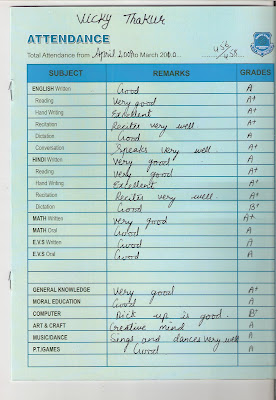 Vicky Thakur
ATTENDANCE
Total Attendance from April 2009 to March 2010. 436/458
SUBJECT REMARKS GRADES
ENGLISH Written Good A
Reading Very good A+
Hand Writing Excellent A+
Recitation Recites very well A+
Dictation Good A
Conversation Speaks very well A+
HINDI Written Very good A
Reading very good A+
Hand Writing Excellent A+
Recitation Recites very well. A+
Dictation Good B+
MATH Written very good A+
MATH Oral Good A
E.V.S Written Good A
E.V.S Oral Good A
GENERAL KNOWLEDGE Very good A+
MORAL EDUCATION Good A
COMPUTER Pick up is good. B+
ART & CRAFT Creative mind A
MUSIC/DANCE Sings and dances very well A
P.T/GAMES Good A